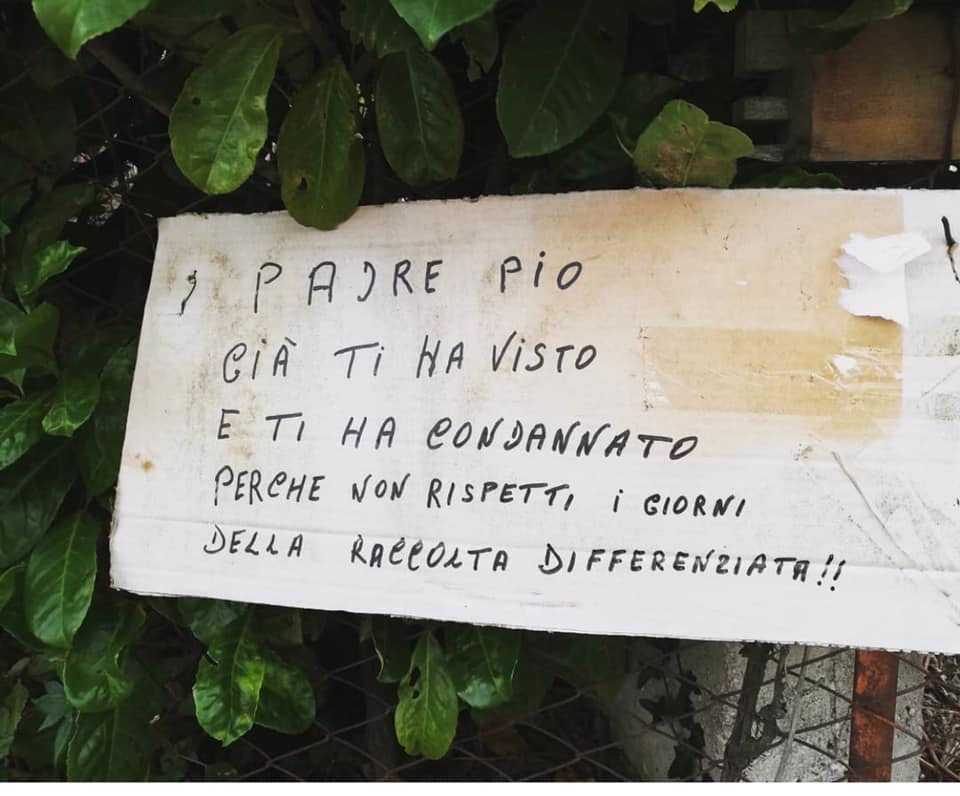 PADRE PIO
GIÀ TI HA VISTO
E TI HA CONDANNATO
PERCHE NON RISPETTI I GIORNI
DELLA RACCOLTA DIFFERENZIATA!!